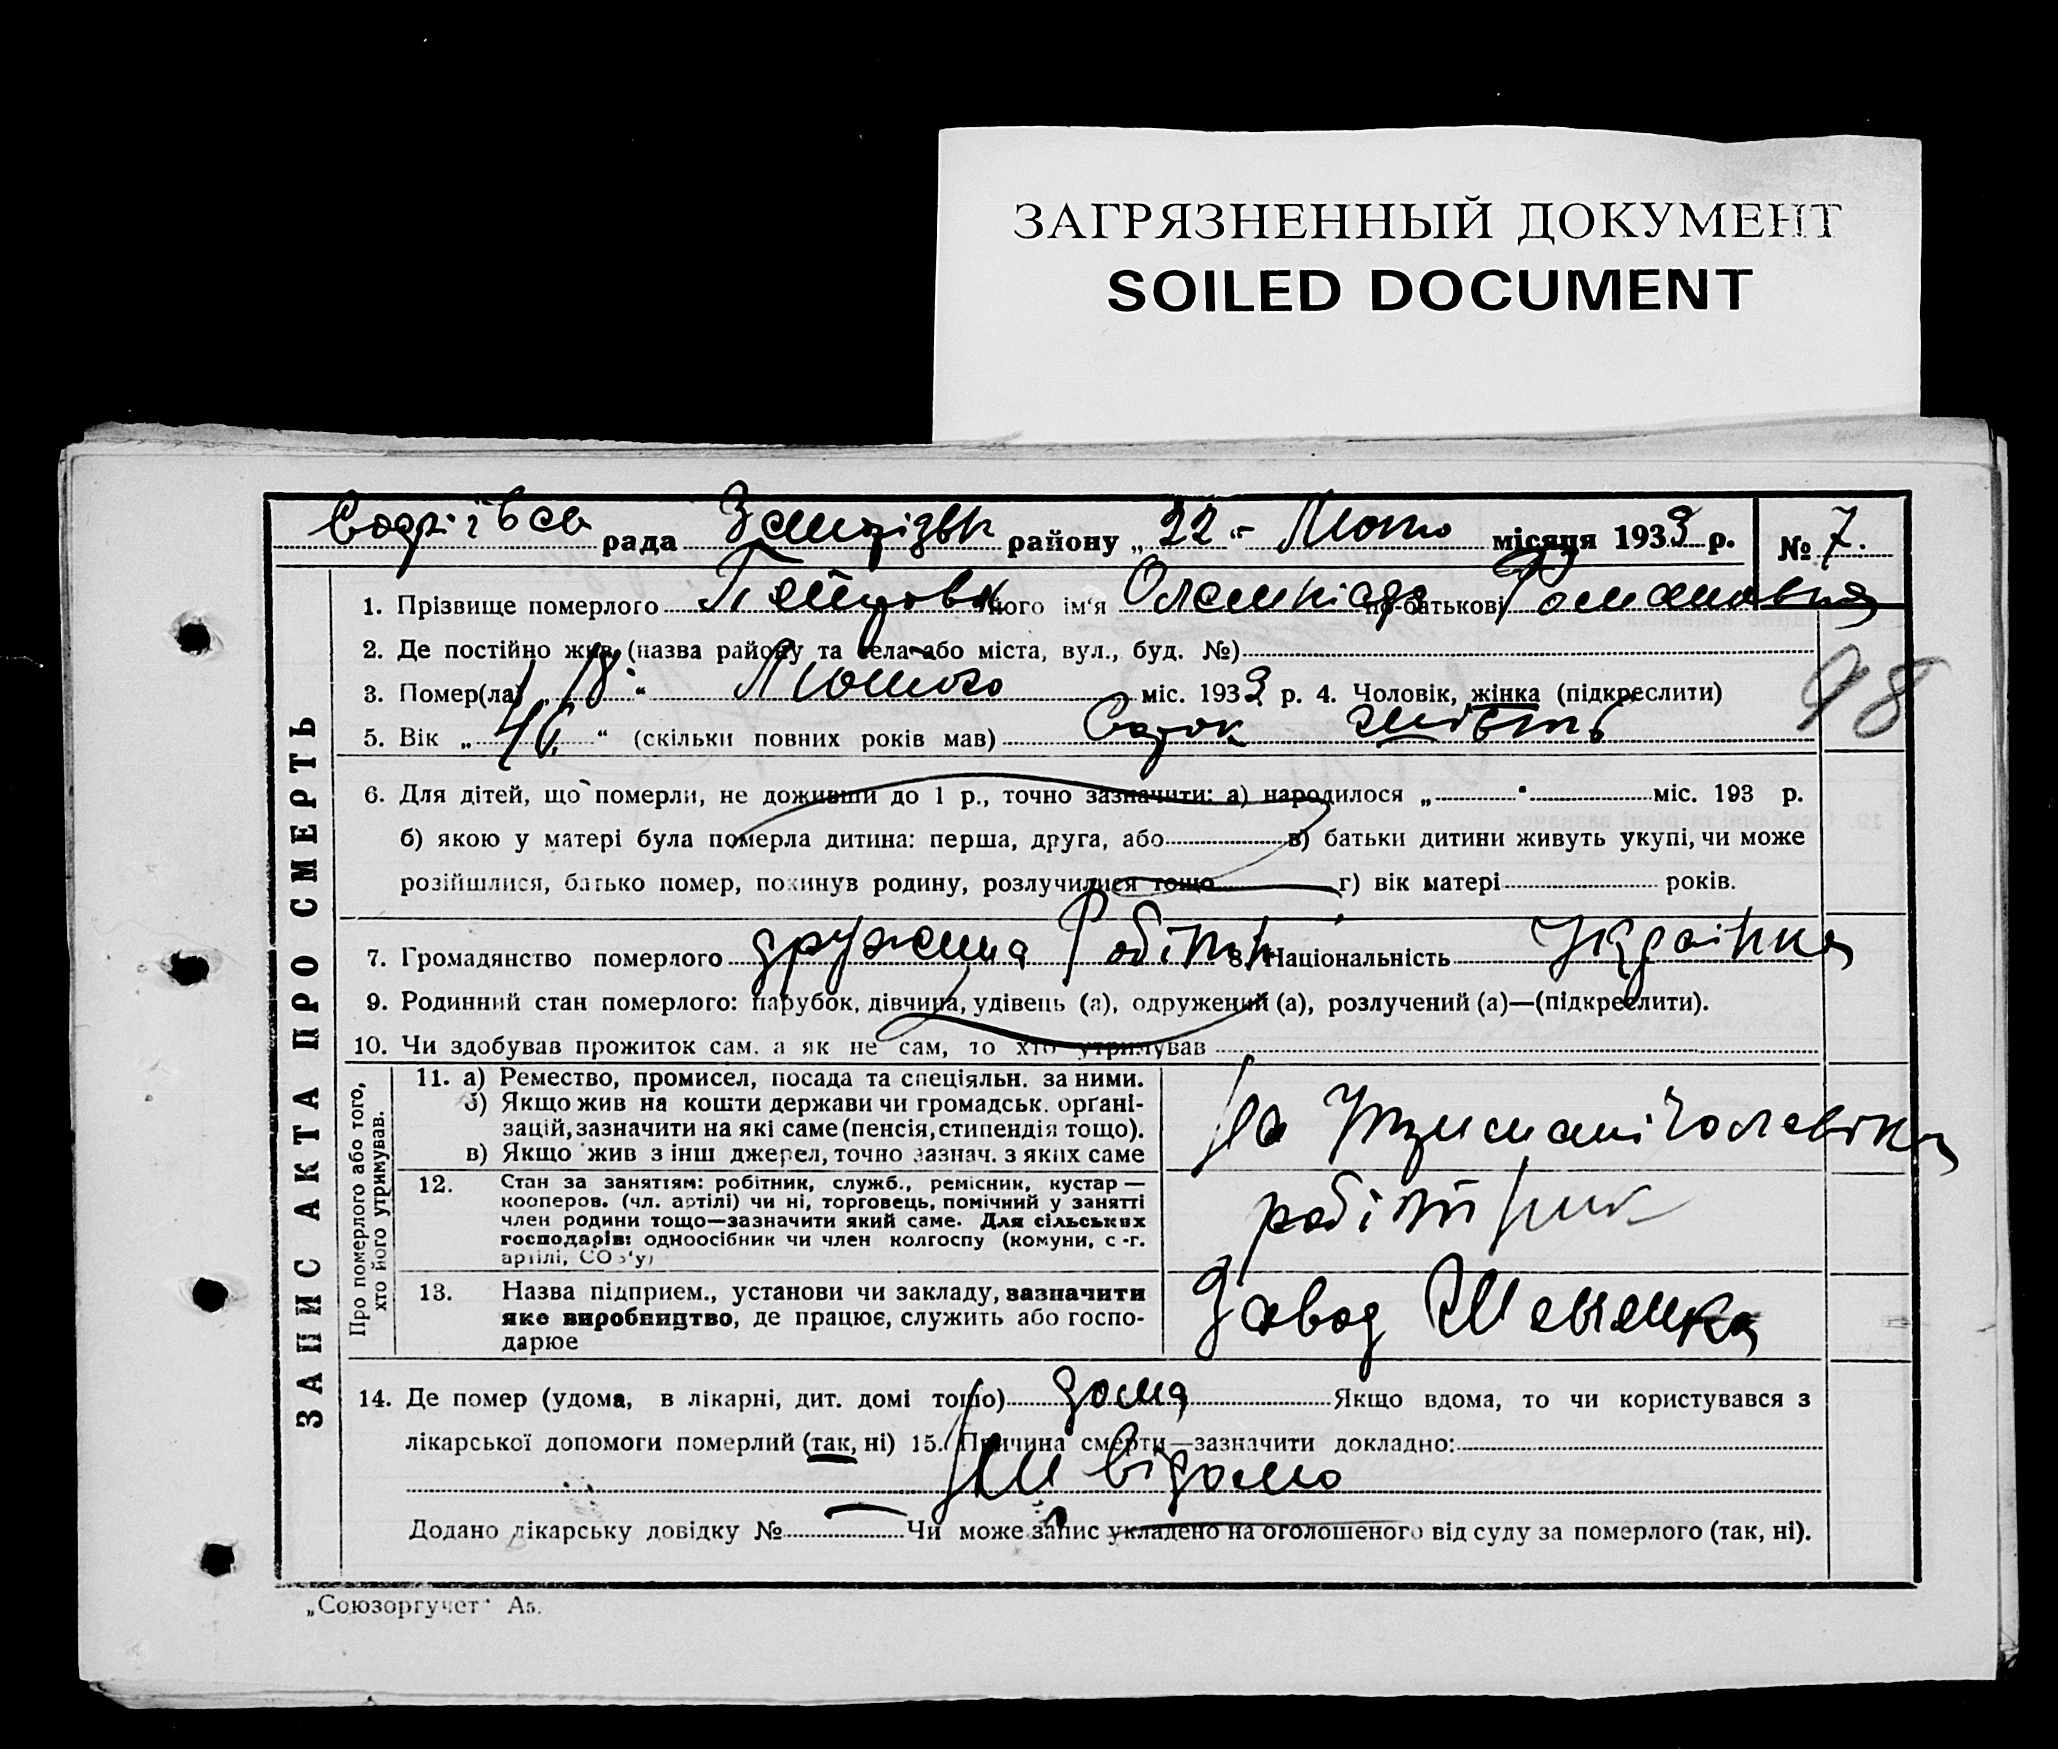 ЗАГРЯЗНЕННЫЙ ДОКУМЕНТ
SOILED DOCUMENT
рада району „22“ Лютого місяця 1933 р. № 7.
1. Прізвище померлого його ім'я по-батькові Романовна
2. Де постійно жив (назва району та села або міста, вул., буд. №)
98
3. Помер(ла) „18“ Лютого міс. 1933 р. 4. Чоловік, жінка (підкреслити)
5. Вік „46“ (скільки повних років мав) Сорок шість
6. Для дітей, що померли, не доживши до 1 р., точно зазначити: а) народилося „ “ міс. 193 р.
б) якою у матері була померла дитина: перша, друга, або в) батьки дитини живуть укупі, чи може
розійшлися, батько помер, покинув родину, розлучилися тощо г) вік матері років.
7. Громадянство померлого дружина Робітн 8. Національність Українка
9. Родинний стан померлого: парубок, дівчина, удівець (а), одружений (а), розлучений (а)—(підкреслити).
10. Чи здобував прожиток сам. а як не сам, то хто утримував
ЗАПИС АКТА ПРО СМЕРТЬ
Про померлого або того,
хто його утримував.
11. а) Ремество, промисел, посада та спеціяльн. за ними.
б) Якщо жив на кошти держави чи громадськ. орґані-
зацій, зазначити на які саме (пенсія, стипендія тощо).
в) Якщо жив з інш джерел, точно зазнач. з яких саме
На чоловіка
12. Стан за заняттям: робітник, служб., ремісник, кустар —
кооперов. (чл. артілі) чи ні, торговець, помічний у занятті
член родини тощо—зазначити який саме. Для сільських
господарів: одноосібник чи член колгоспу (комуни, с.-г.
артілі, СОЗ'у)
робітник
13. Назва підприєм., установи чи закладу, зазначити
яке виробництво, де працює, служить або госпо-
дарює
Завод Шевченка
14. Де помер (удома, в лікарні, дит. домі тощо) дома Якщо вдома, то чи користувався з
лікарської допомоги померлий (так, ні) 15. Причина смерти—зазначити докладно:
Не відомо
Додано лікарську довідку № Чи може запис укладено на оголошеного від суду за померлого (так, ні).
„Союзоргучет“ А5.